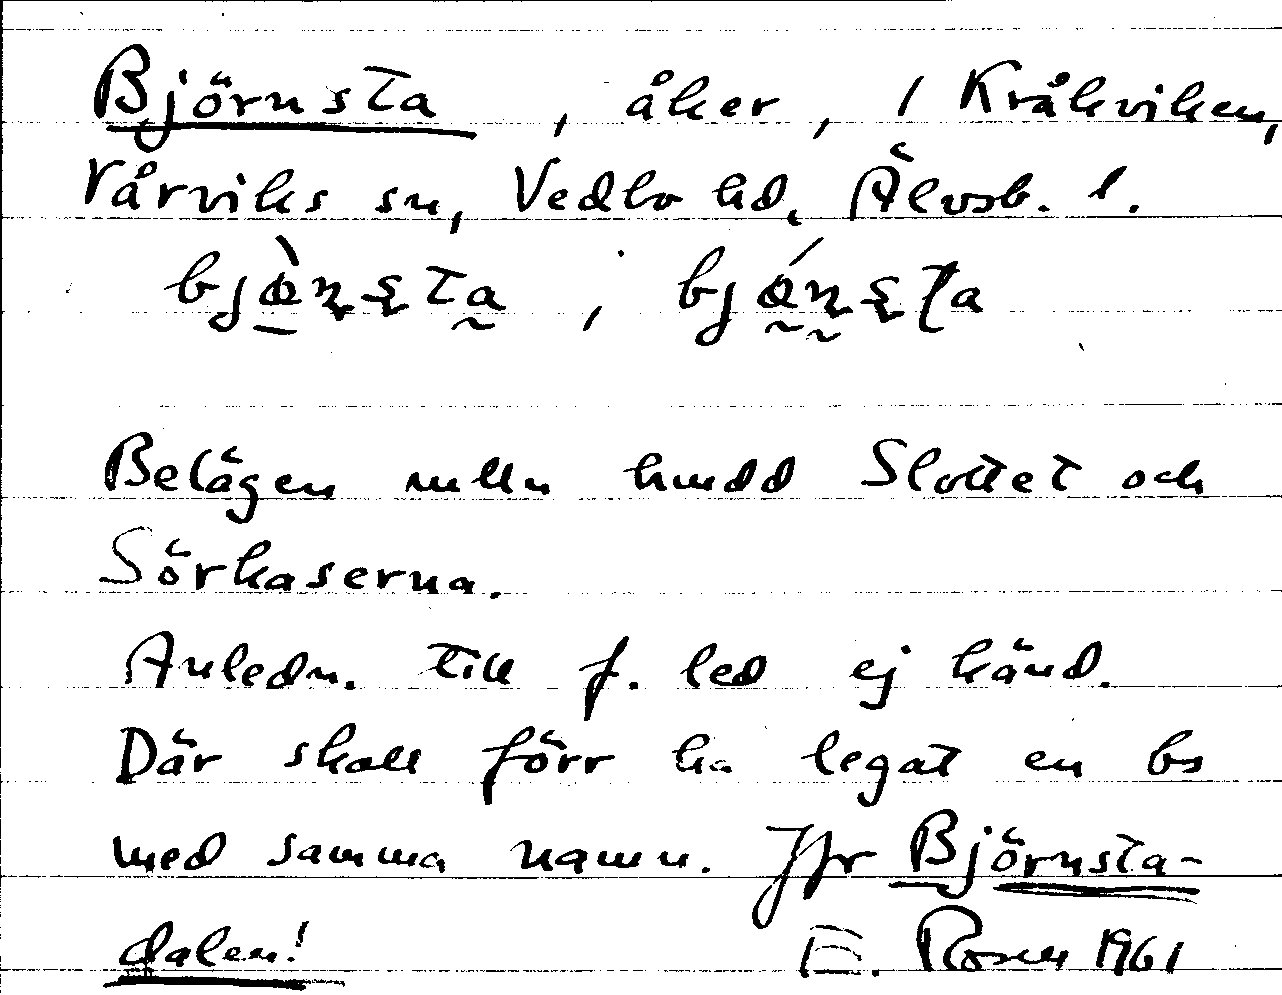 Björnsta, åker, i Kråkviken,
Vårviks sn, Vedbo hd, Älvsb. l.
Belägen mellan hmdd Slottet och
Sörkaserna.
Anledn. till f. led ej känd.
Där skall förr ha legat en bs
med samma namn. Jfr Björnsta-
dalen! E. Rosell 1961